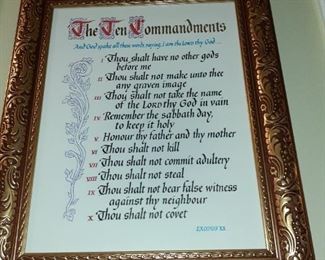 The Ten Commandments
And God spake all these words, saying, I am the LORD thy God...
I Thou shalt have no other gods
before me
II Thou shalt not make unto thee
any graven image
III Thou shalt not take the name
of the LORD thy God in vain
IV Remember the sabbath day,
to keep it holy
V Honour thy father and thy mother
VI Thou shalt not kill
VII Thou shalt not commit adultery
VIII Thou shalt not steal
IX Thou shalt not bear false witness
against thy neighbour
X Thou shalt not covet
EXODUS XX